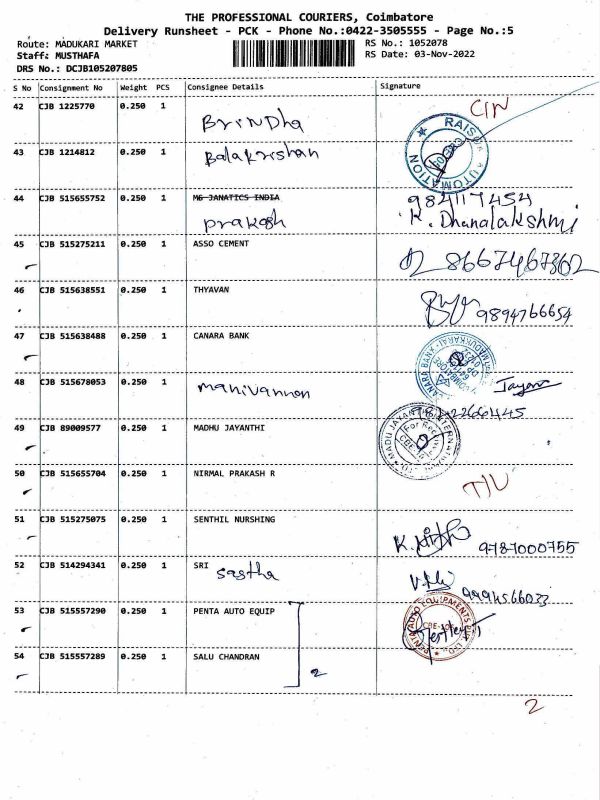 THE PROFESSIONAL COURIERS, Coimbatore
Delivery Runsheet - PCK - Phone No.:0422-3505555 - Page No.:5
Route: MADUKARI MARKET RS No.: 1052078
Staff: MUSTHAFA RS Date: 03-Nov-2022
DRS No.: DCJB105207805
S No Consignment No Weight PCS Consignee Details Signature
42 CJB 1225770 0.250 1 Brindha
43 CJB 1214812 0.250 1 Balakrishan
RAISON AUTOMATION
44 CJB 515655752 0.250 1 MG JANATICS INDIA 984117454
Prakash K. Dhanalakshmi
45 CJB 515275211 0.250 1 ASSO CEMENT 8667467362
46 CJB 515638551 0.250 1 THYAVAN 9894766654
47 CJB 515638488 0.250 1 CANARA BANK
48 CJB 515678053 0.250 1 Manivannan Jayan
49 CJB 89009577 0.250 1 MADHU JAYANTHI
50 CJB 515655704 0.250 1 NIRMAL PRAKASH R
51 CJB 515275075 0.250 1 SENTHIL NURSHING 9787000755
52 CJB 514294341 0.250 1 SRI
Sastha 9994566033
53 CJB 515557290 0.250 1 PENTA AUTO EQUIP
54 CJB 515557289 0.250 1 SALU CHANDRAN
2
2